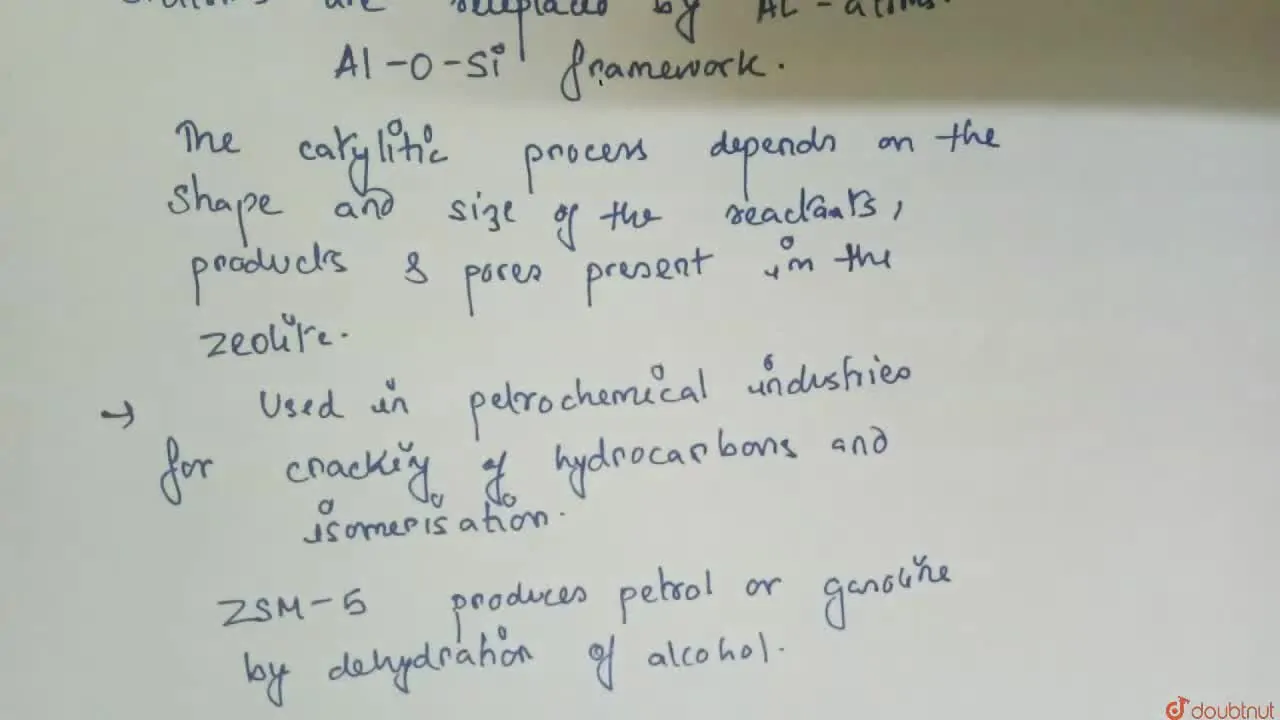 are replaced by Al-atoms.
Al-O-Si framework.
The catylitic process depends on the
shape and size of the reactants,
products & pores present in the
zeolite.
→ Used in petrochemical industries
for cracking of hydrocarbons and
isomerisation.
ZSM-5 produces petrol or gasoline
by dehydration of alcohol.
doubtnut